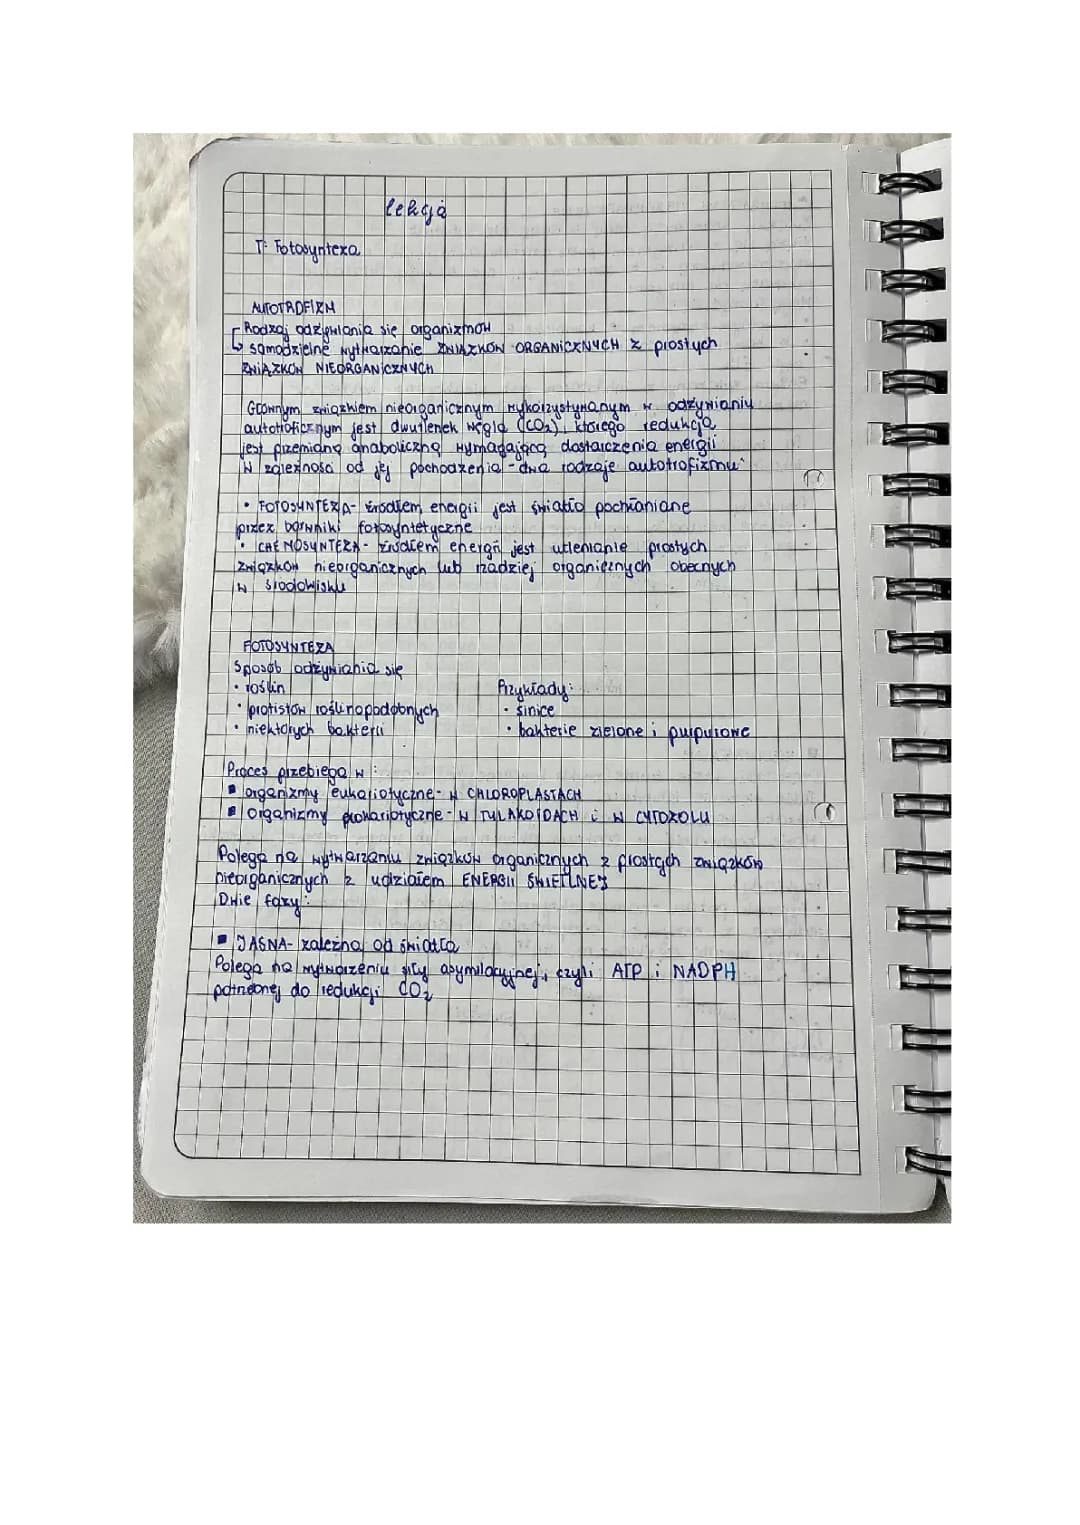 lekcja
T: Fotosynteza
AUTOTROFIZM
Rodzaj odżywiania się organizmów
↳ samodzielne wytwarzanie ZWIĄZKÓW ORGANICZNYCH z prostych
ZWIĄZKÓW NIEORGANICZNYCH
Głównym związkiem nieorganicznym wykorzystywanym w odżywianiu
autotroficznym jest dwutlenek węgla (CO₂), którego redukcja
jest przemianą anaboliczną wymagającą dostarczenia energii
W zależności od jej pochodzenia - dwa rodzaje autotrofizmu:
• FOTOSYNTEZA- źródłem energii jest światło pochłaniane
przez barwniki fotosyntetyczne
• CHEMOSYNTEZA- źródłem energii jest utlenianie prostych
związków nieorganicznych lub rzadziej organicznych obecnych
w środowisku
FOTOSYNTEZA
Sposób odżywiania się
• roślin
• protistów roślinopodobnych
• niektórych bakterii
Przykłady:
• sinice
• bakterie zielone i purpurowe
Proces przebiega w :
▪ organizmy eukariotyczne- w CHLOROPLASTACH
▪ Organizmy prokariotyczne- w TYLAKOIDACH i w CYTOZOLU
Polega na wytwarzaniu związków organicznych z prostych związków
nieorganicznych z udziałem ENERGII ŚWIETLNEJ
Dwie fazy:
▪ JASNA- zależna od światła
Polega na wytworzeniu siły asymilacyjnej, czyli ATP i NADPH
potrzebnej do redukcji CO₂